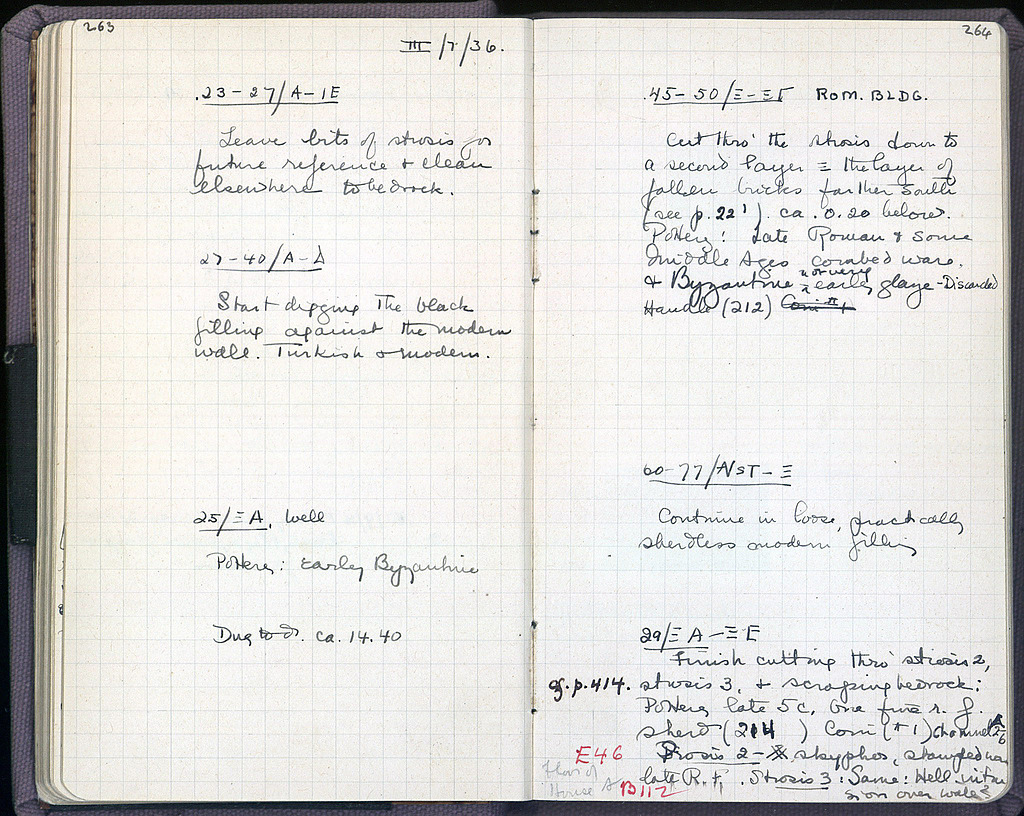 263
III/7/36.
23-27/A-ΙΕ
Leave bits of strosis for
future reference & clean
elsewhere to bedrock.
27-40/A-Δ
Start digging the black
filling against the modern
wall. Turkish & modern.
25/ΞA, Well
Pottery: Early Byzantine
Dug to d. ca. 14.40
264
45-50/Ξ-ΞΓ ROM. BLDG.
Cut thro' the strosis down to
a second layer = the layer of
fallen bricks farther south
(see p. 221). ca. 0.20 below.
Pottery: Late Roman & some
Middle Ages combed ware.
& Byzantine not very early glaze - Discarded
Handle (212) Coin #1
60-77/ΛΣΤ-Ξ
Continue in loose, practically
sherdless modern filling
29/ΞA-ΞE
Finish cutting thro' strosis 2,
cf. p. 414. strosis 3, & scraping bedrock:
Pottery late 5c, one fine r. f.
sherd (214) Coin (#1) channel
E46 Strosis 2 - skyphos, stamped
Floor of late R.f. Strosis 3: Same: Hell.
House A B112 over wall?